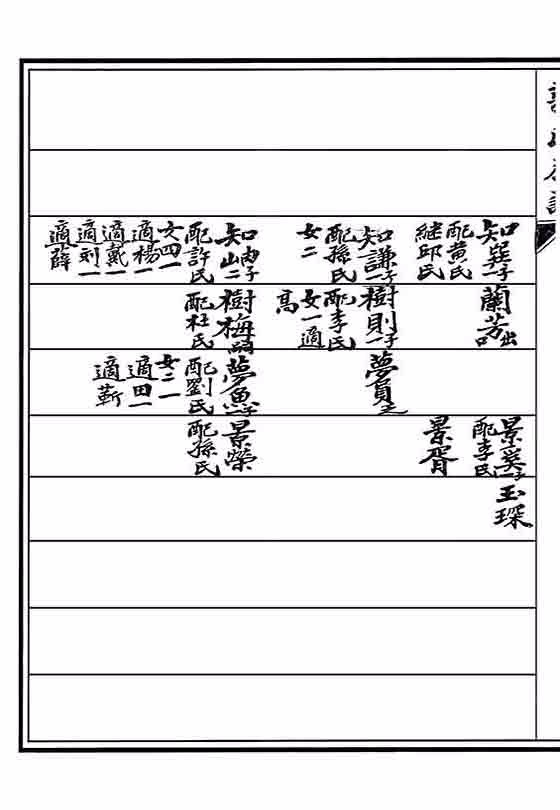 知巽一子
配黄氏
繼邱氏
知謙一子
配孫氏
女二
知
配許氏
女四一
適楊一
適戴一
適刘一
適薛
蘭芳出
樹則一子
配李氏
女一適
高
樹梅嗣
配杜氏
夢負之
夢魚一子
配劉氏
女二一
適田一
適靳
景奠一子
配李氏
景胥
景榮
配孫氏
玉琛